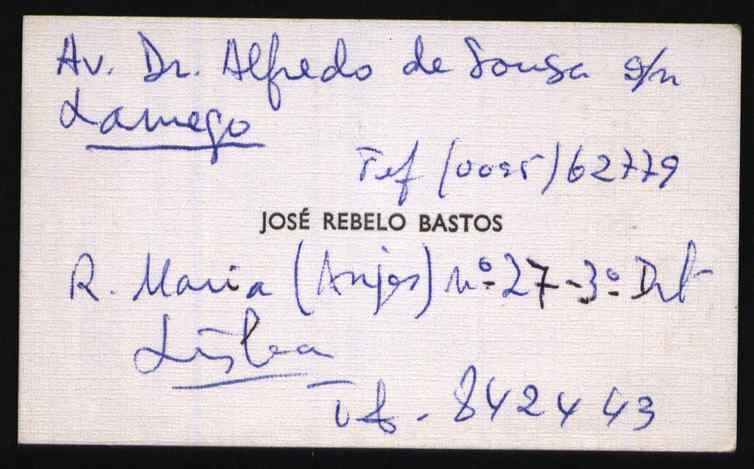 Av. Dr. Alfredo de Sousa s/n
Lamego
Tef (0095) 62779
JOSÉ REBELO BASTOS
R. Maria (Anjos) nº 27-3º Drt
Lisboa
Tef. 842443